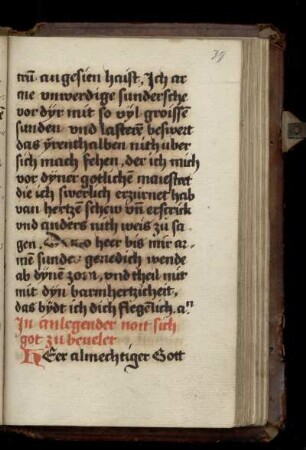 39
trü angesien haist, Ich ar
me vnwerdige sundersche
vor dyr mit so vyl groissē
sunden vnd lasterē beswert
das yrenthalben nith vber
sich mach sehen, der ich mich
vor dyner gotlichē maiestet
die ich swerlich erzurnet hab
van hertzē schew vñ erschrick
vnd anders nith weis zu sa
gen. O heer bis mir ar
mē sunde genedich wende
ab dynē zorn, vnd theil mir
mit dyn barmhertzicheit,
das bydt ich dich flegēlich. a
In anlegender noit sich
got zu beuelet
HEer almechtiger Gott